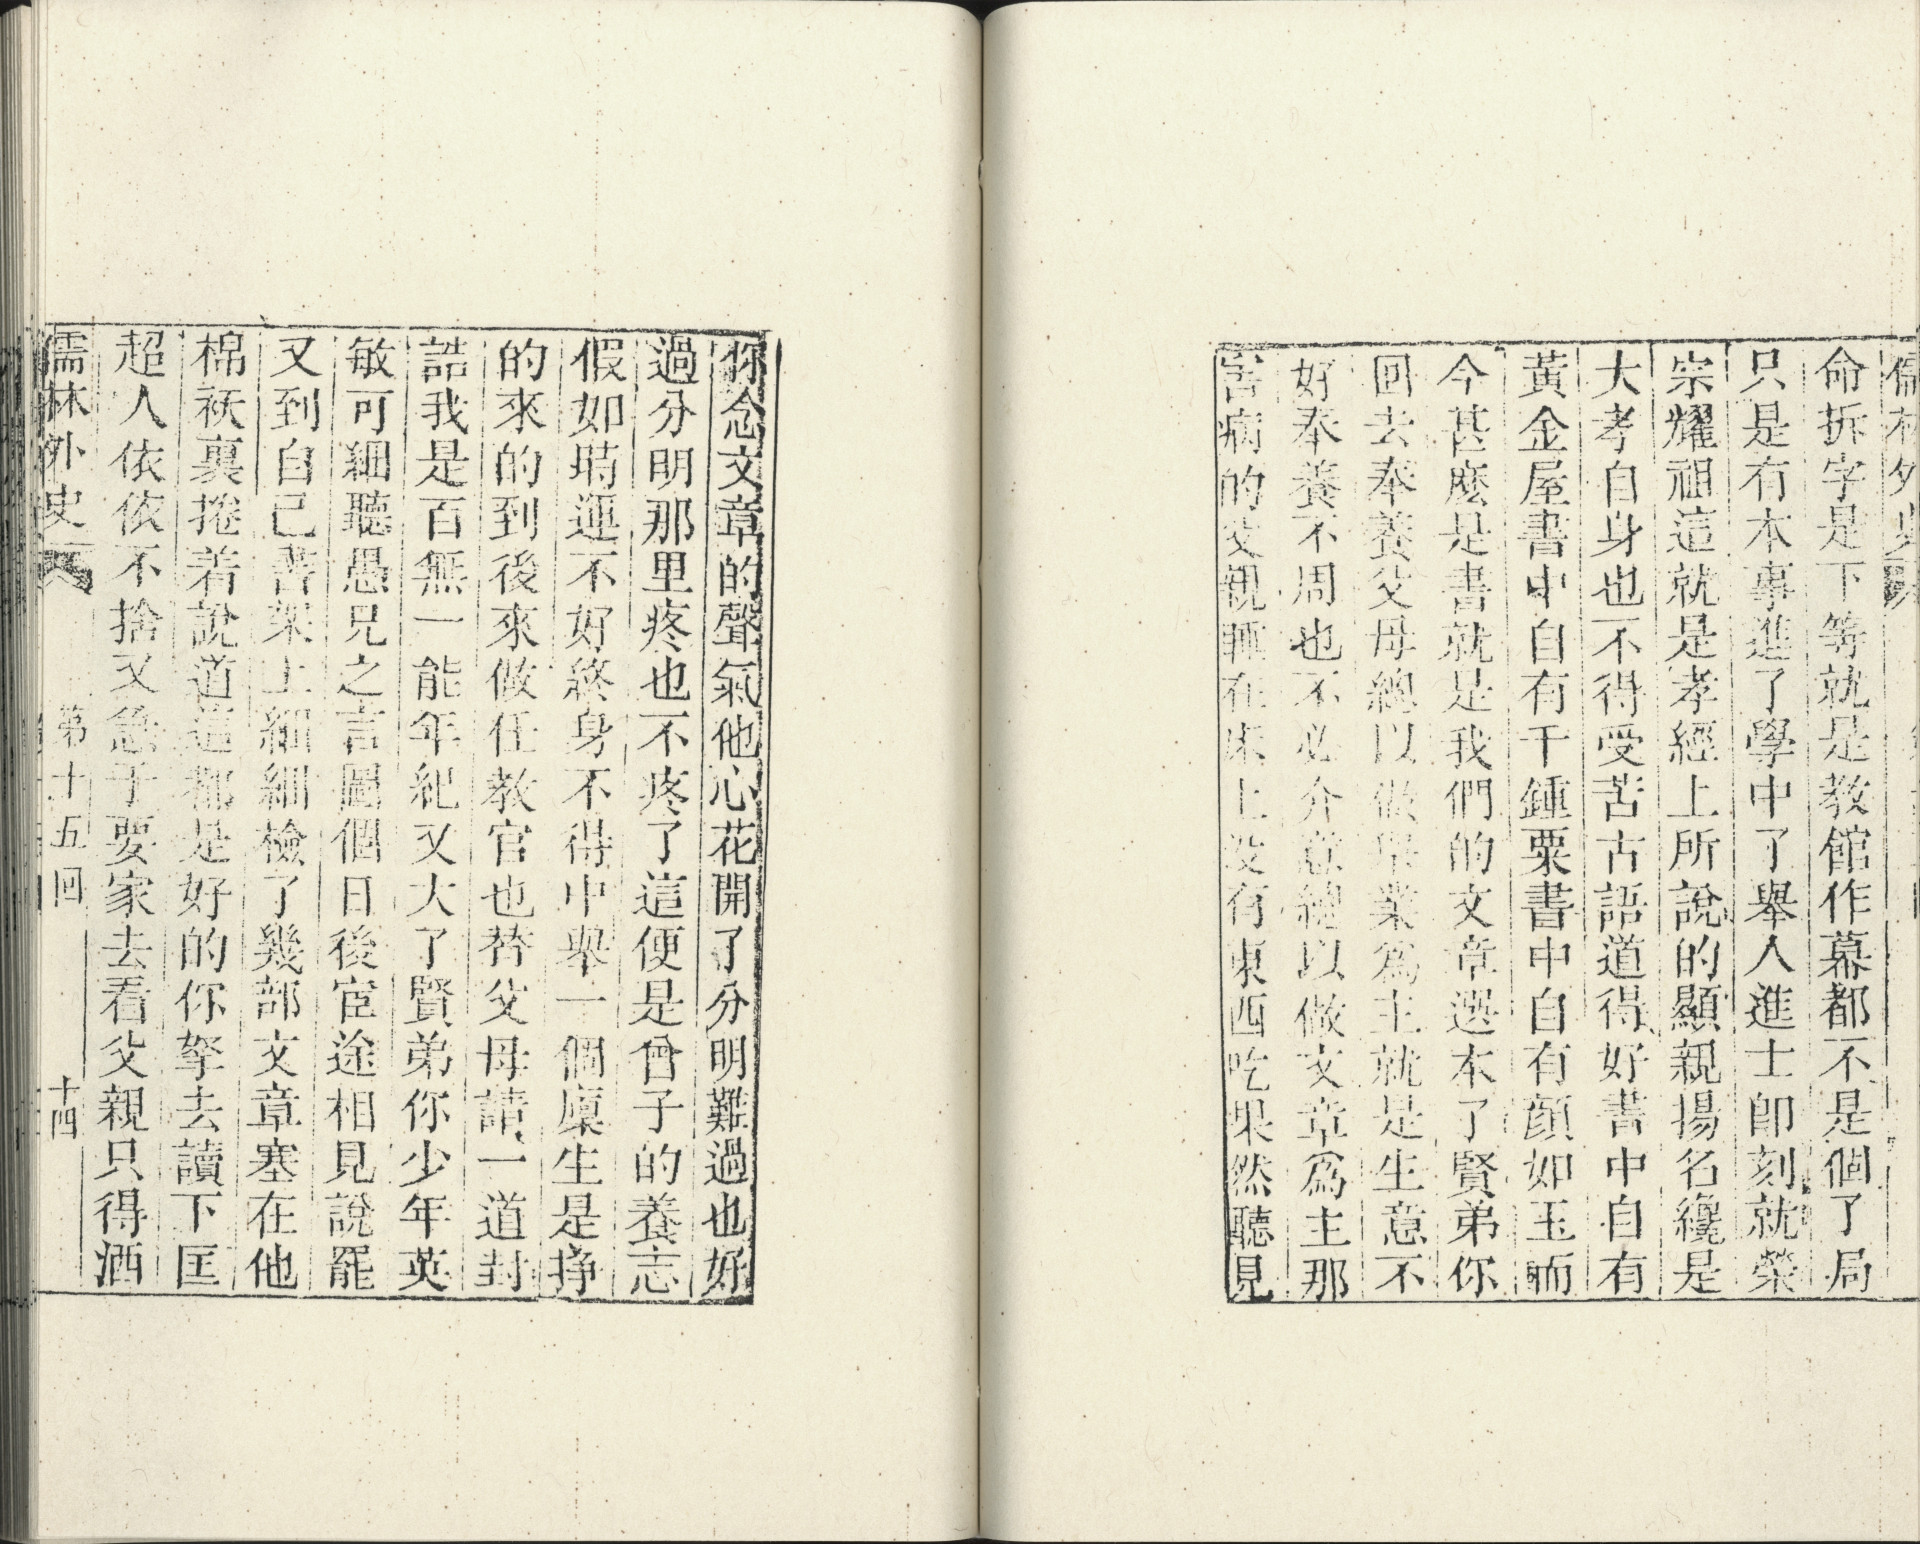 儒林外史
命拆字是下等就是教館作幕都不是個了局
只是有本事進了學中了舉人進士卽刻就榮
宗耀祖這就是孝經上所說的顯親揚名纔是
大孝自身也不得受苦古語道得好書中自有
黃金屋書中自有千鍾粟書中自有顏如玉而
今甚麽是書就是我們的文章選本了賢弟你
回去奉養父母總以做舉業爲主就是生意不
好奉養不周也不必介意總以做文章爲主那
害病的父親睡在床上沒有東西吃果然聽見
你念文章的聲氣他心花開了分明難過也好
過分明那里疼也不疼了這便是曾子的養志
假如時運不好終身不得中舉一個廩生是掙
的來的到後來做任教官也替父母請一道封
誥我是百無一能年紀又大了賢弟你少年英
敏可細聽愚兄之言圖個日後宦途相見說罷
又到自己書架上細細檢了幾部文章塞在他
棉袄裏捲着說道這都是好的你拏去讀下匡
超人依依不捨又急于要家去看父親只得洒
儒林外史 第十五回 十四